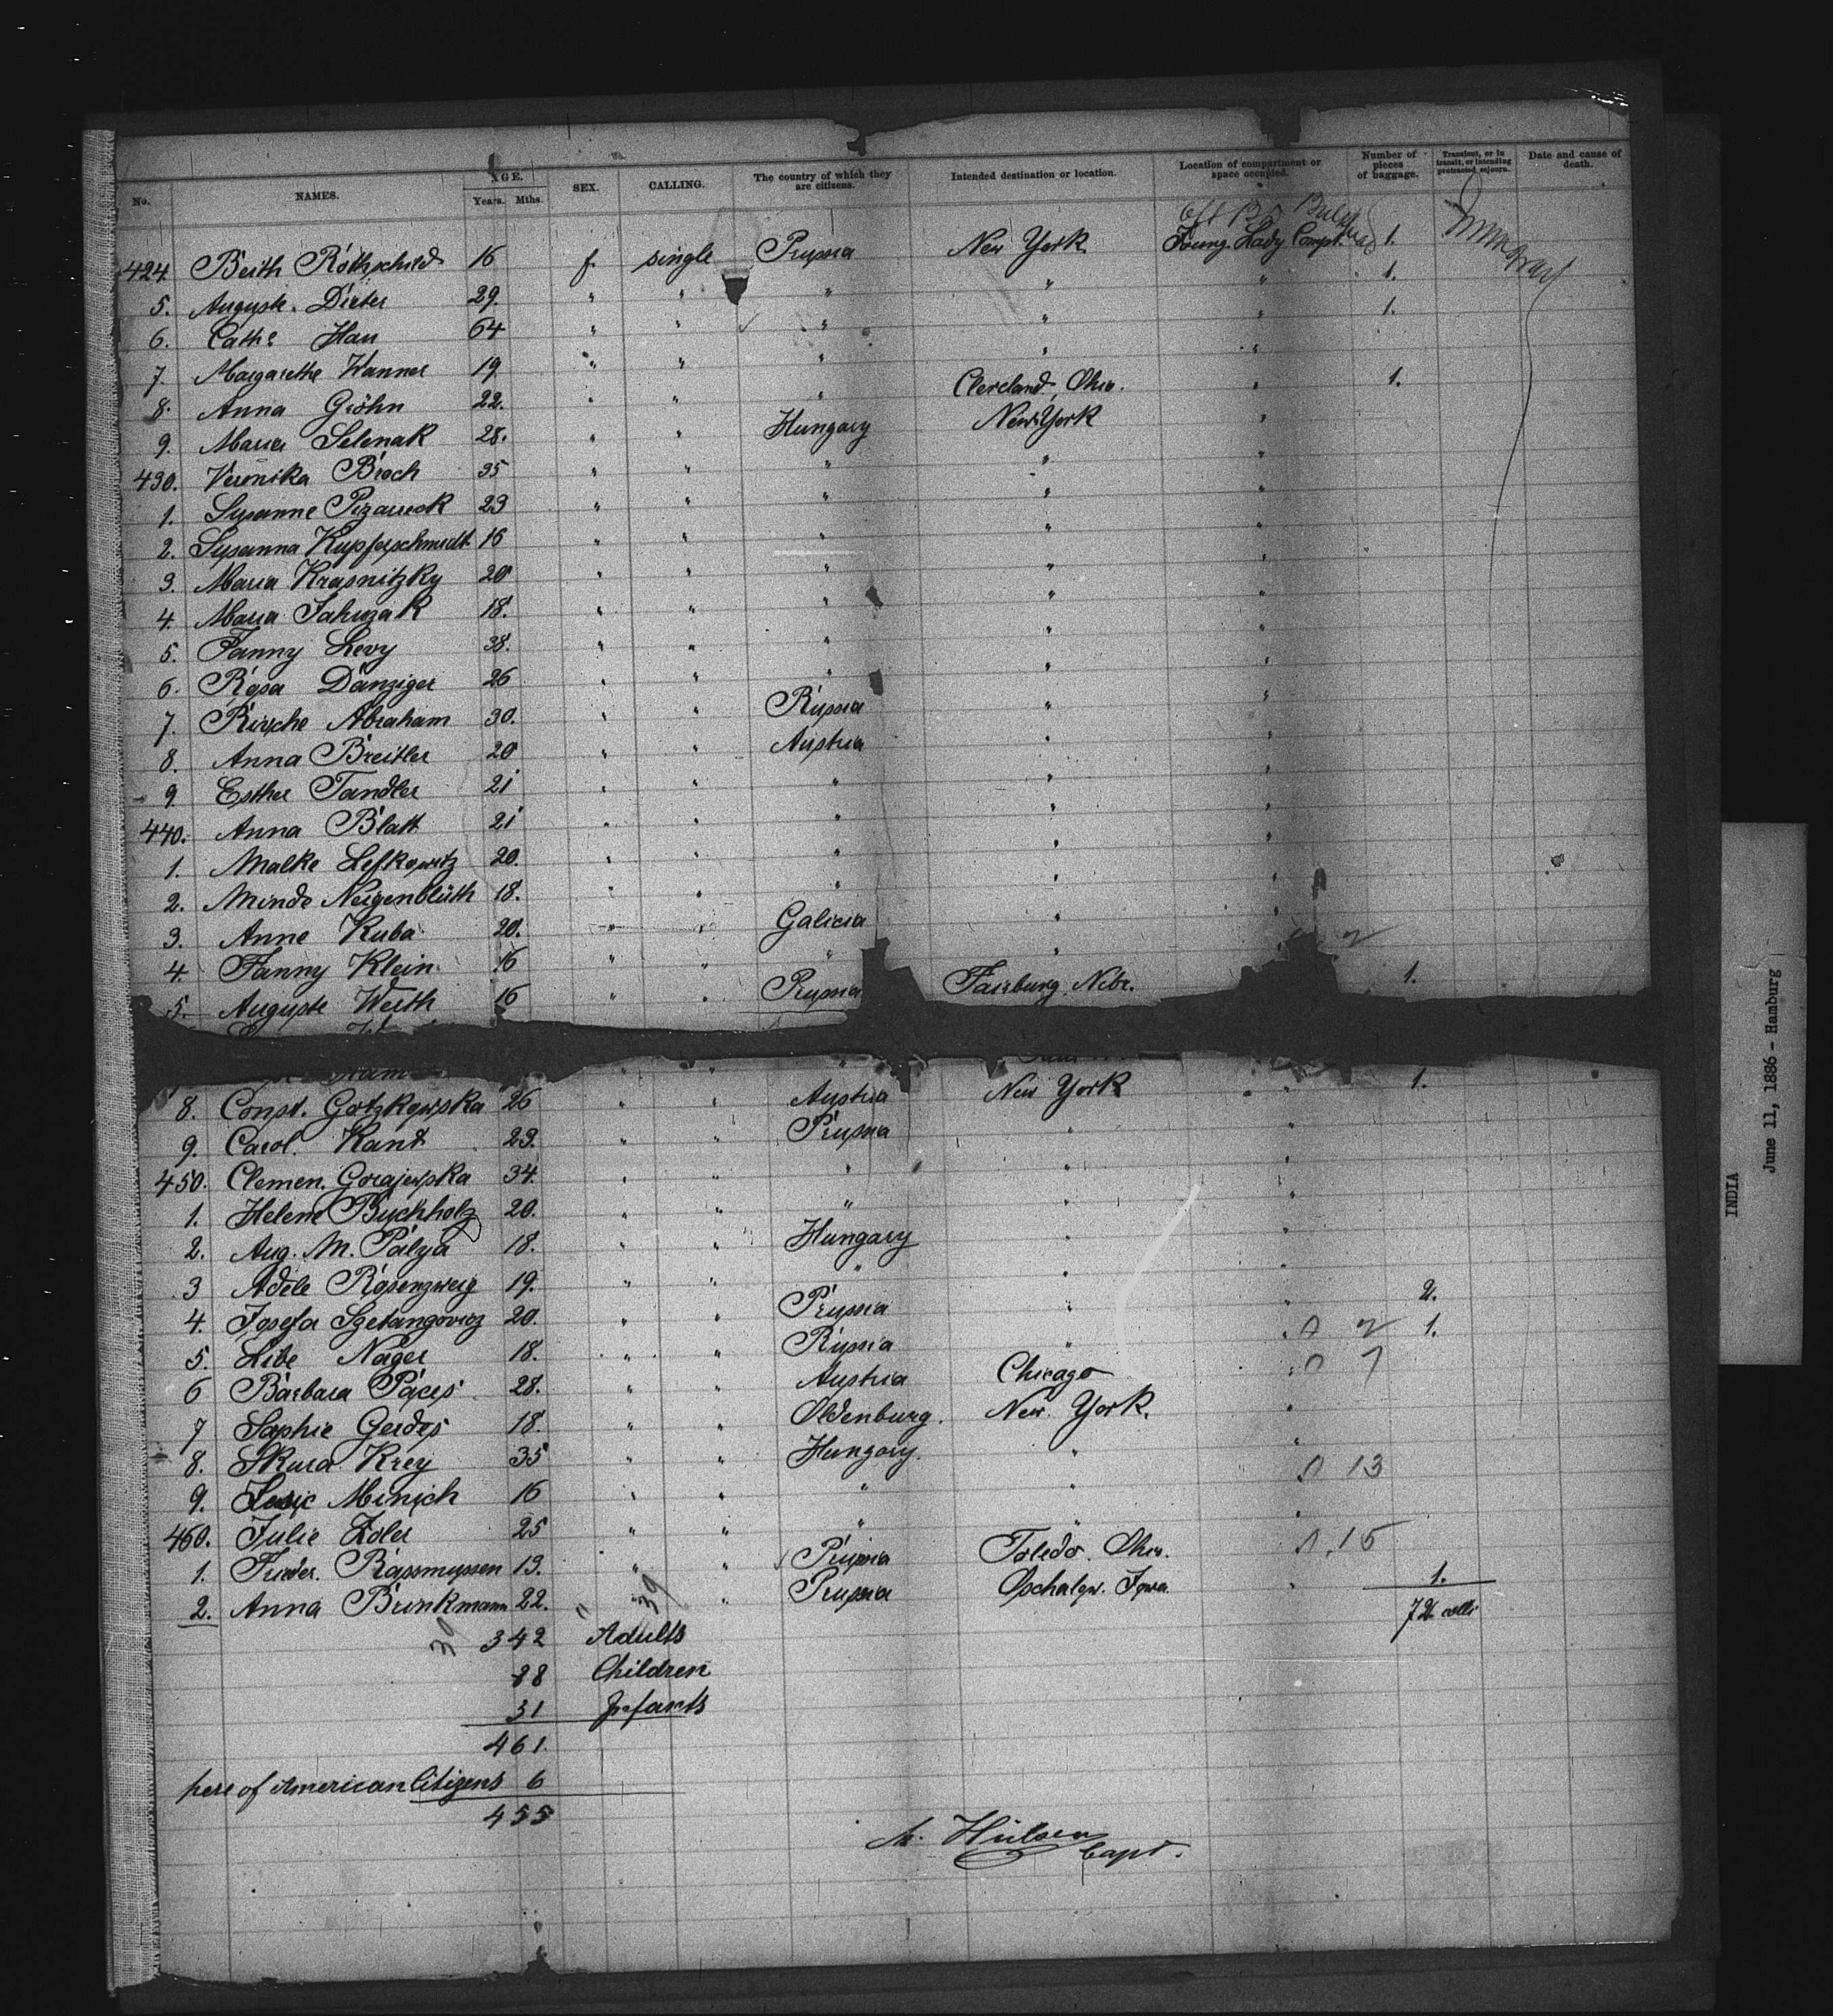 No. NAMES. AGE. Years. Mths. SEX. CALLING. The country of which they are citizens. Intended destination or location. Location of compartment or space occupied. Number of pieces of baggage. Transient, or in transit, or intending protracted sojourn. Date and cause of death.
424 Beith Rothschild 16 f. single Prussia New York Young Lady Compt. 1.
5. Auguste Dieter 29. " " " " " 1.
6. Cathe Hau 64 " " " " " 1.
7. Margarethe Wanner 19 " " " " "
8. Anna Gröhn 22. " " " Cleveland, Ohio. " 1.
9. Maria Selenak 28. " " Hungary New York "
430. Veronika Broch 35 " " " " "
1. Susanne 23 " " " " "
2. Susanna Kupferschmidt 16 " " " " "
3. Maria Krasnitzky 20 " " " " "
4. Maria 18. " " " " "
5. Fanny Levy 38. " " " " "
6. Rosa Danziger 26 " " " " "
7. Abraham 30. " " Russia " "
8. Anna Breitler 20 " " Austria " "
9. Esther Tandler 21 " " " " "
440. Anna Blatt 21 " " " " "
1. Malke Lefkowitz 20. " " " " "
2. Minde Neigenblüth 18. " " " " "
3. Anne Kuba 20. " " Galicia " "
4. Fanny Klein 16 " " " "
5. Auguste Werth 16 " " Prussia Fairburg Nebr. 1.
8. Const. Gotzkowska 26 " " Austria New York " 1.
9. Carol. Kant 23. " " Prussia " "
450. Clemen. Gorajewska 34. " " " " "
1. Helene Buchholz 20. " " " " "
2. Aug. M. Palya 18. " " Hungary " "
3 Adele Rosenzweig 19. " " " " "
4. Josefa 20. " " Prussia " " 2.
5. Libe Nager 18. " " Russia " " 1.
6 Barbara 28. " " Austria Chicago "
7 Sophie Gerdes 18. " " Oldenburg. New York. "
8. Krey 35 " " Hungary. " "
9. Minich 16 " " " " 13
460. Julie Zoler 25 " " " " "
1. Frieder. Rassmussen 19. " " Prussia Toledo. Ohio. 15
2. Anna Brinkmann 22. " " Prussia Iowa " 1.
72 colli
39 39
342 Adults
88 Children
31 Infants
461.
here of American Citizens 6
455
M. Hülsen
Capt.
INDIA
June 11, 1886 - Hamburg